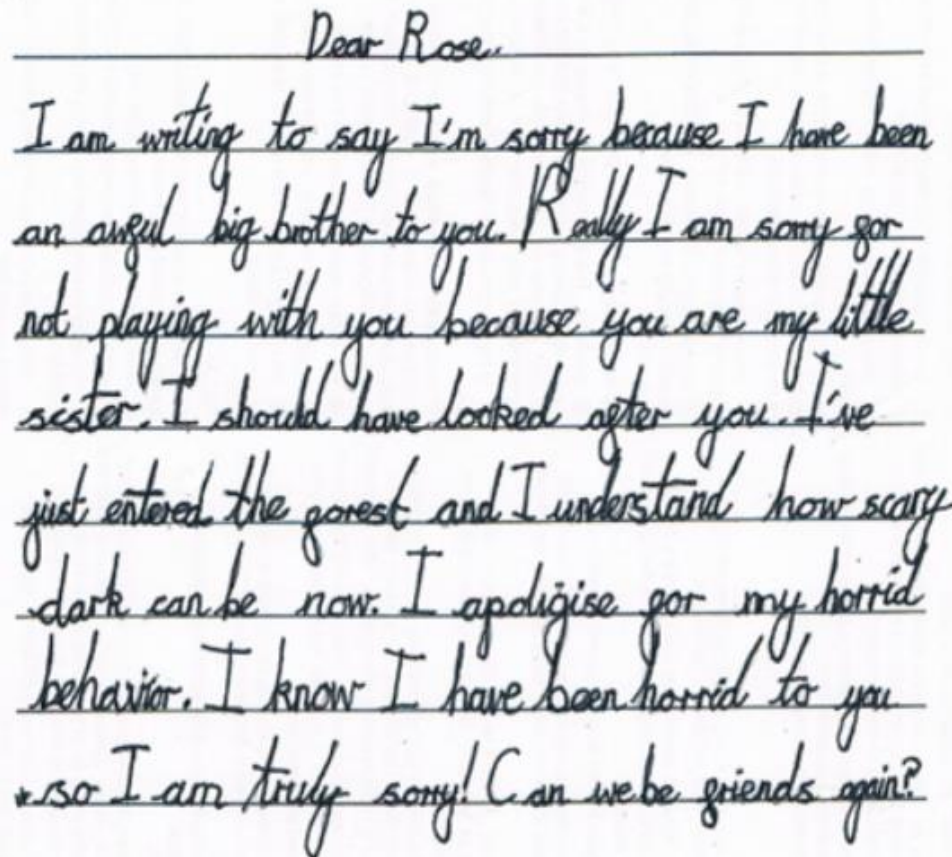 Dear Rose.
I am writing to say I'm sorry because I have been
an awful big brother to you. Really I am sorry for
not playing with you because you are my little
sister. I should have looked after you. I've
just entered the forest and I understand how scary
dark can be now. I apoligise for my horrid
behavior. I know I have been horrid to you
so I am truly sorry! Can we be friends again?